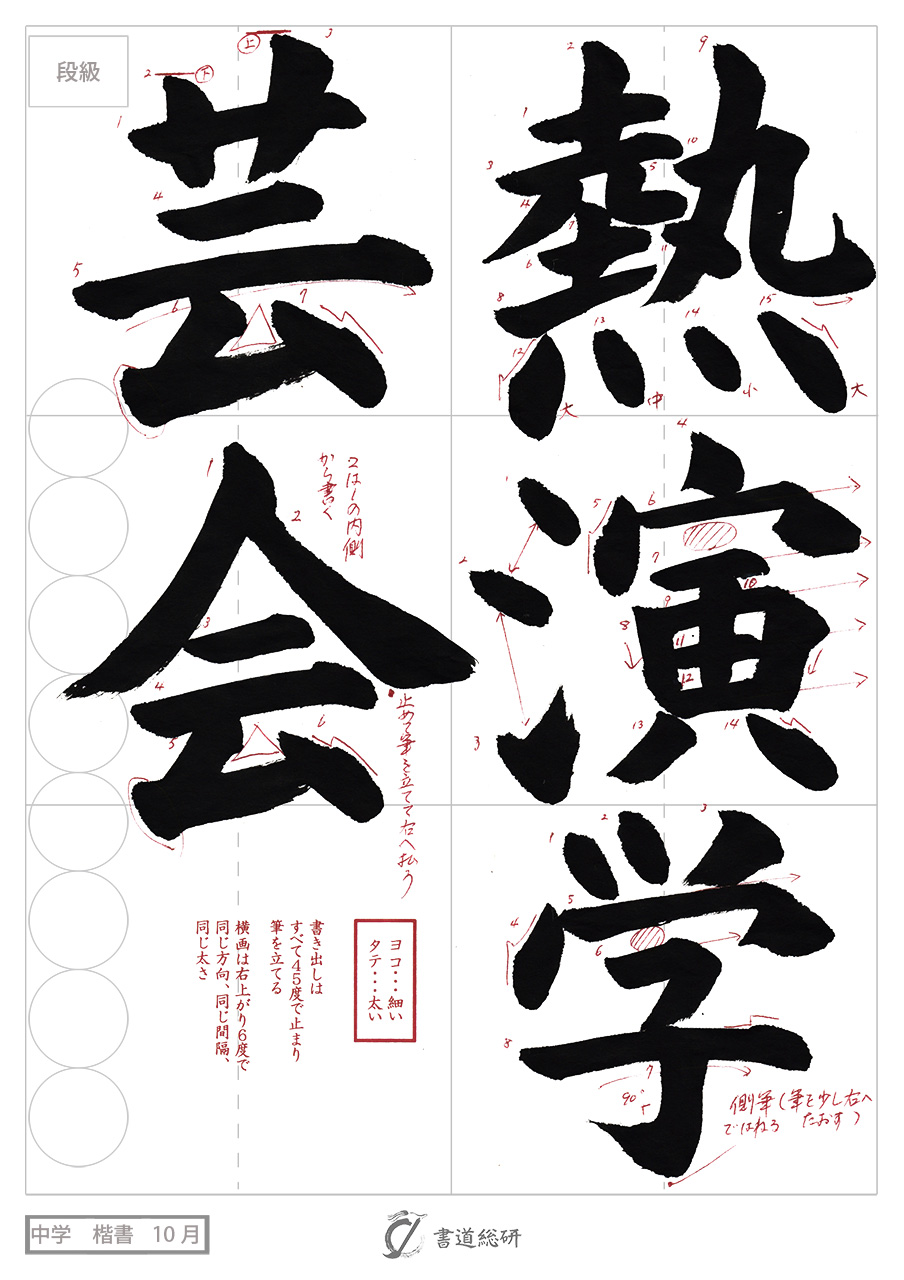 段級
熱演学
芸会
2は1の内側
から書く
止めて筆を立てて右へ払う
側筆(筆を少し右へ
たおす)
ではねる
90°
大
中
小
大
上
下
ヨコ・・・細い
タテ・・・太い
書き出しは
すべて45度で止まり
筆を立てる
横画は右上がり6度で
同じ方向、同じ間隔、
同じ太さ
中学 楷書 10月
書道総研